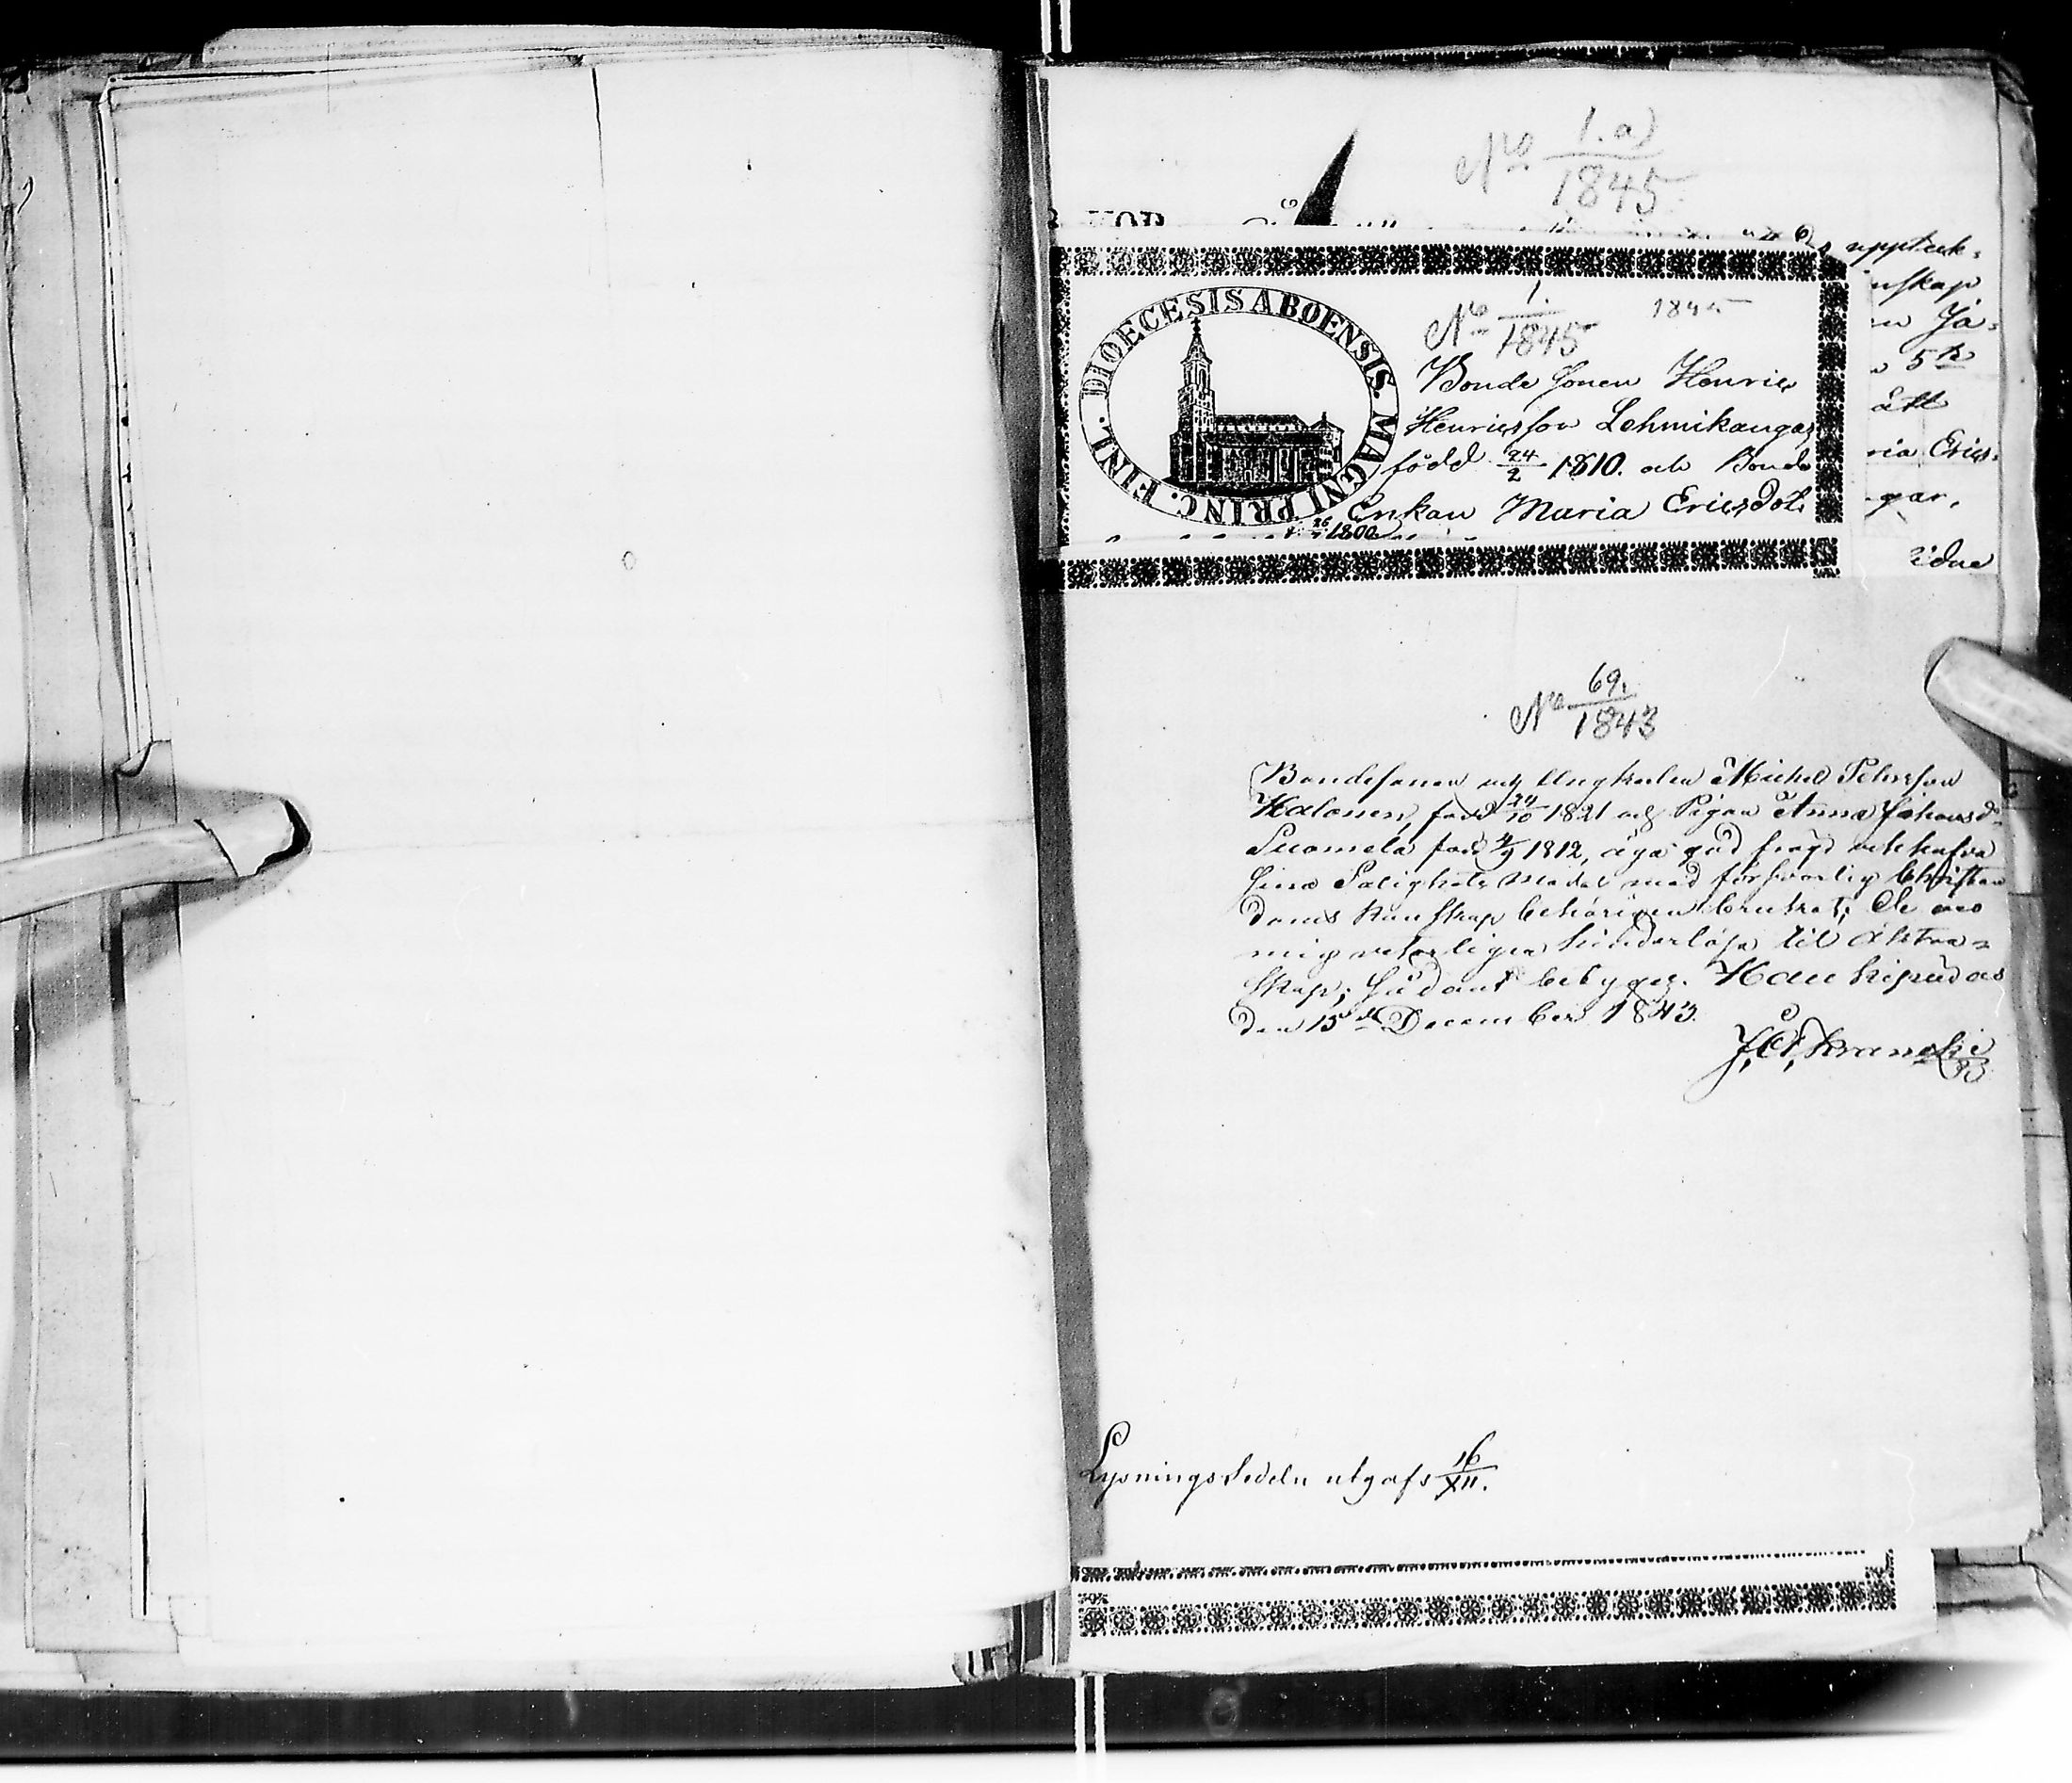 No 1.a)
1845
upptek-
nskap
Jä-
5te
ått
ria Erics-
gar,
DIOECESIS ABOENSIS. MAGNI PRINC. FINL.
No 1.
1845
1845
Bonde sonen Henric
Henricsson Lehmikangas
född 24/2 1810. och Bonde
Enkan Maria Ericsdotr
26 1800
No 69.
1843
Bondesonen och Ungkarlen Michel Petersson
Halonen, född 24/10 1821 och Pigan Anna Johansd:
Suomela född 4/9 1812, äga god frägd och hafva
sina Salighets Medel med försvarlig Christen
doms kunskap behörigen brukat; De äro
mig veterligen hinderlösa til äkten-
skap; Sådant betygas. Haukipudas
den 15de December 1843.
J. A. Kranck
Lysningssedeln utgafs 16/XII.